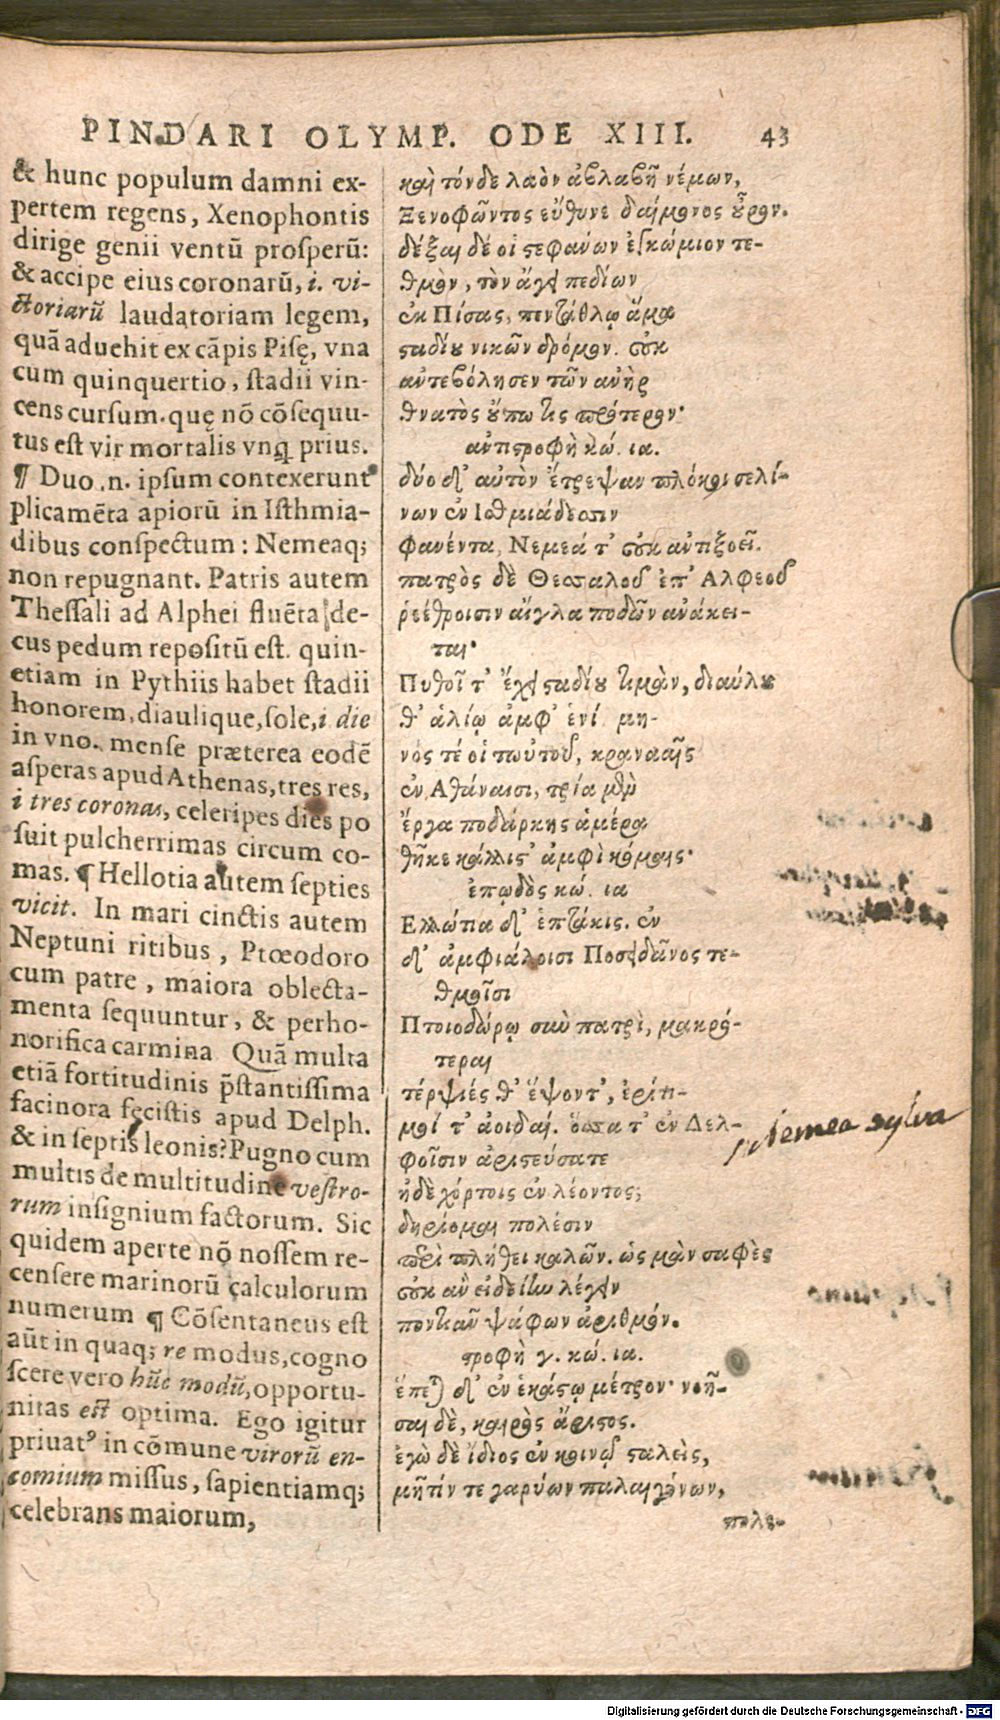 PINDARI OLYMP. ODE XIII. 43
& hunc populum damni ex-
pertem regens, Xenophontis
dirige genii ventũ prosperũ:
& accipe eius coronarũ, i. vi-
ctoriarũ laudatoriam legem,
quã aduehit ex cãpis Pisę, vna
cum quinquertio, stadii vin-
cens cursum. quę nõ cõsequu-
tus est vir mortalis vnq̃ prius.
¶ Duo .n. ipsum contexerunt
plicamẽta apiorũ in Isthmia-
dibus conspectum: Nemeaq;
non repugnant. Patris autem
Thessali ad Alphei fluẽta de-
cus pedum repositũ est. quin-
etiam in Pythiis habet stadii
honorem, diaulique, sole, i die
in vno. mense præterea eodẽ
asperas apud Athenas, tres res,
i tres coronas, celeripes dies po
suit pulcherrimas circum co-
mas. ¶ Hellotia autem septies
vicit. In mari cinctis autem
Neptuni ritibus, Ptœodoro
cum patre, maiora oblecta-
menta sequuntur, & perho-
norifica carmina Quã multa
etiã fortitudinis p̃stantissima
facinora fecistis apud Delph.
& in septis leonis? Pugno cum
multis de multitudine vestro-
rum insignium factorum. Sic
quidem aperte nõ nossem re-
censere marinorũ calculorum
numerum ¶ Cõsentaneus est
aũt in quaq; re modus, cogno
scere vero hũc modũ, opportu-
nitas est optima. Ego igitur
priuatꝰ in cõmune virorũ en-
comium missus, sapientiamq;
celebrans maiorum,
καὶ τόνδε λαὸν ἀβλαβῆ νέμων,
Ξενοφῶντος εὔθυνε δαίμονος οὖρον.
δέξαι δέ οἱ στεφάνων ἐγκώμιον τε-
θμὸν, τὸν ἄγει πεδίων
ἐκ Πίσας, πενταέθλῳ ἅμα
σταδίου νικῶν δρόμον. οὐκ
ἀντεβόλησεν τῶν ἀνὴρ
θνατὸς οὔπω τις πρότερον·
ἀντιστροφὴ κώ. ια.
δύο δ' αὐτὸν ἔτρεψαν πλόκοι σελί-
νων ἐν Ισθμιάδεσσιν
φανέντα, Νεμεά τ' οὐκ ἀντιξοεῖ.
πατρὸς δὲ Θεσσαλοῦ ἐπ' Αλφεοῦ
ῥεέθροισιν αἴγλα ποδῶν ἀνάκει-
ται·
Πυθοῖ τ' ἔχει σταδίου τιμὰν, διαύλου
θ' ἁλίῳ ἀμφ' ἑνί. μη-
νός τέ οἱ τωὐτοῦ, κρανααῖς
ἐν Αθάναισι, τρία μὲν
ἔργα ποδάρκης ἁμέρα
θῆκε κάλλιστ' ἀμφὶ κόμαις·
ἐπῳδὸς κώ. ια
Ελλώτια δ' ἑπτάκις. ἐν
δ' ἀμφιάλοισι Ποσειδᾶνος τε-
θμοῖσι
Πτοιοδώρῳ σὺν πατρὶ, μακρό-
τεραι
τέρψιές θ' ἕψοντ', ἐρίτι-
μοί τ' ἀοιδαί. ὅσσα τ' ἐν Δελ-
φοῖσιν ἀριστεύσατε
ἠδὲ χόρτοις ἐν λέοντος;
δηρίομαι πολέσιν
περὶ πλήθει καλῶν. ὡς μὰν σαφὲς
οὐκ ἂν εἰδείην λέγειν
ποντιᾶν ψάφων ἀριθμόν.
στροφὴ γ. κώ. ια.
ἕπεται δ' ἐν ἑκάστῳ μέτρον· νοῆ-
σαι δὲ, καιρὸς ἄριστος.
ἐγὼ δὲ ἴδιος ἐν κοινῷ σταλεὶς,
μῆτίν τε γαρύων παλαιγόνων,
πολε-
Nemea sylva
Digitalisierung gefördert durch die Deutsche Forschungsgemeinschaft - DFG